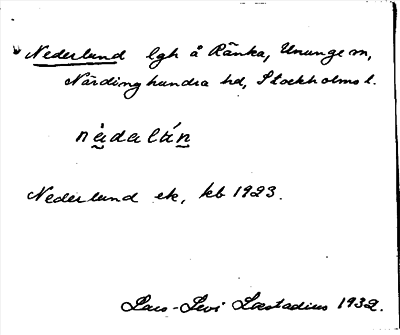 Nederlund lgh å Ränka, Ununge sn,
Närdinghundra hd, Stockholms l.
nàdalán
Nederlund ek, kb 1923.
Lars-Levi Læstadius 1932.